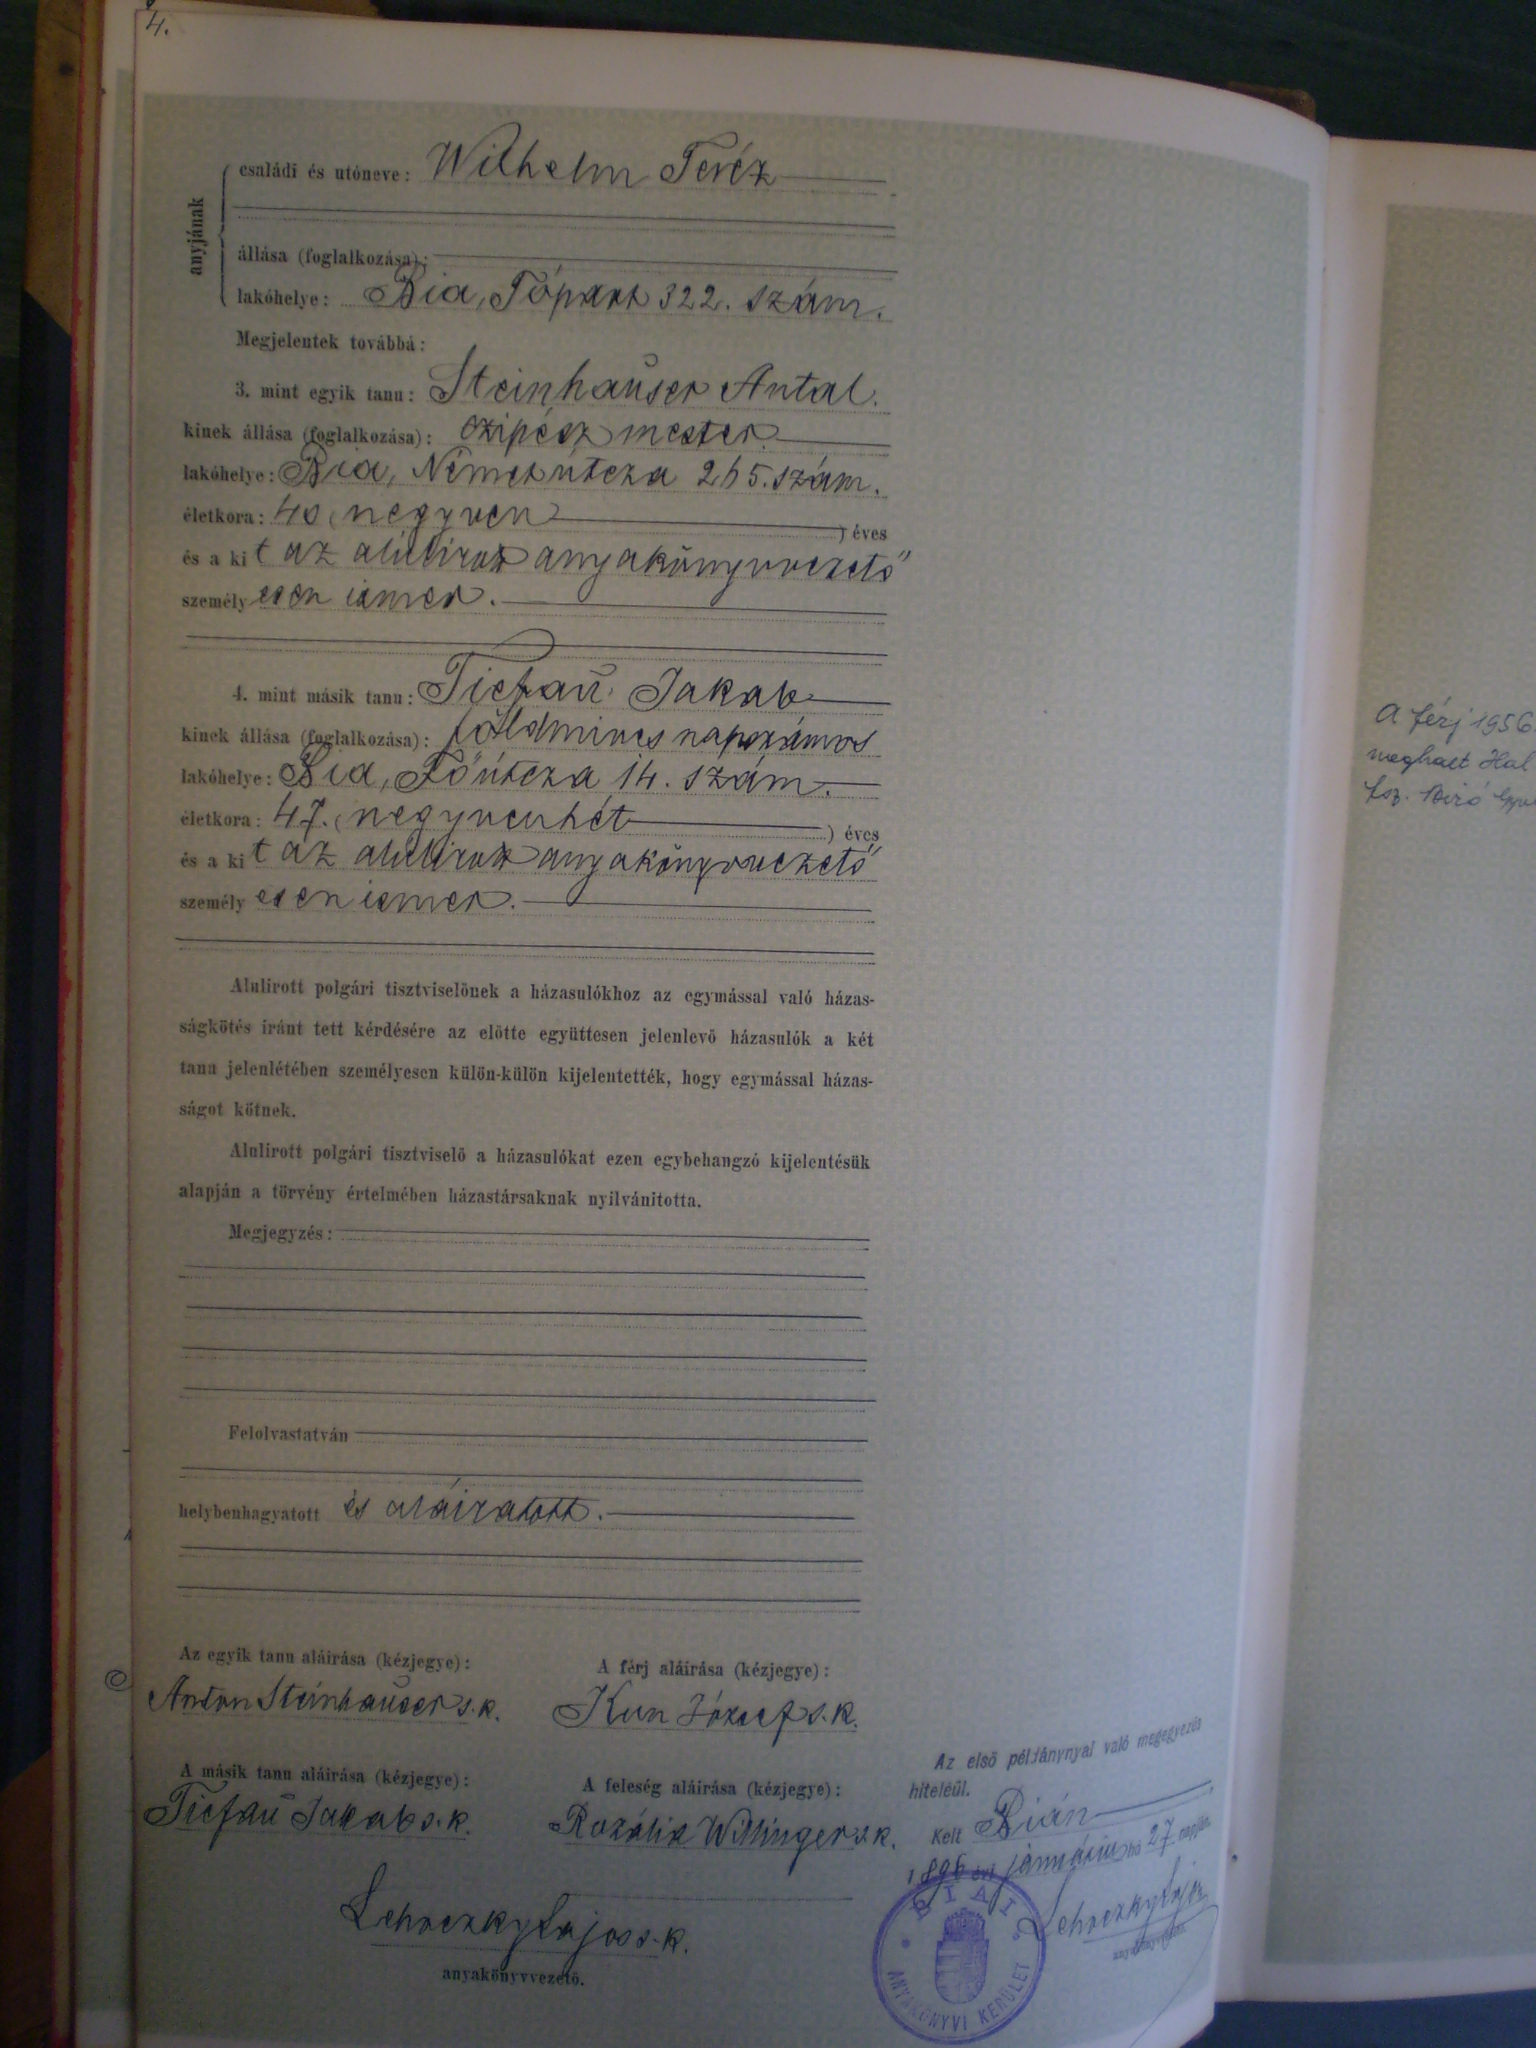 4.
anyjának
családi és utóneve: Wilhelm Teréz
állása (foglalkozása):
lakóhelye: Bia, Tópart 322. szám.
Megjelentek továbbá:
3. mint egyik tanu: Steinhaŭser Antal.
kinek állása (foglalkozása): czipész mester.
lakóhelye: Bia, Németútcza 265. szám.
életkora: 40 (negyven ) éves
és a ki t az alulirott anyakönyvvezető
személy esen ismer.
4. mint másik tanu: Tiefaŭ Jakab
kinek állása (foglalkozása): földmives napszámos
lakóhelye: Bia, Főútcza 14. szám.
életkora: 47. (negyvenhét ) éves
és a ki t az alulirott anyakönyvvezető
személy esen ismer.
Alulirott polgári tisztviselőnek a házasulókhoz az egymással való házas-
ságkötés iránt tett kérdésére az előtte együttesen jelenlevő házasulók a két
tanu jelenlétében személyesen külön-külön kijelentették, hogy egymással házas-
ságot kötnek.
Alulirott polgári tisztviselő a házasulókat ezen egybehangzó kijelentésük
alapján a törvény értelmében házastársaknak nyilvánitotta.
Megjegyzés:
Felolvastatván
helybenhagyatott és aláiratott.
Az egyik tanu aláirása (kézjegye):
Anton Steinhaŭser s. k.
A férj aláirása (kézjegye):
Kun József s. k.
A másik tanu aláirása (kézjegye):
Tiefaŭ Jakab s. k.
A feleség aláirása (kézjegye):
Rozália Willinger s. k.
Lehoczky Lajos s. k.
anyakönyvvezető.
Az első példánynyal való megegyezés
hiteléül.
Kelt Bián
1896 évi januárius hó 27 napján.
Lehoczky Lajos
anyakönyvvezető.
BIAI
ANYAKÖNYVI KERÜLET
A férj 1956.
meghalt Hal
fsz. Biró